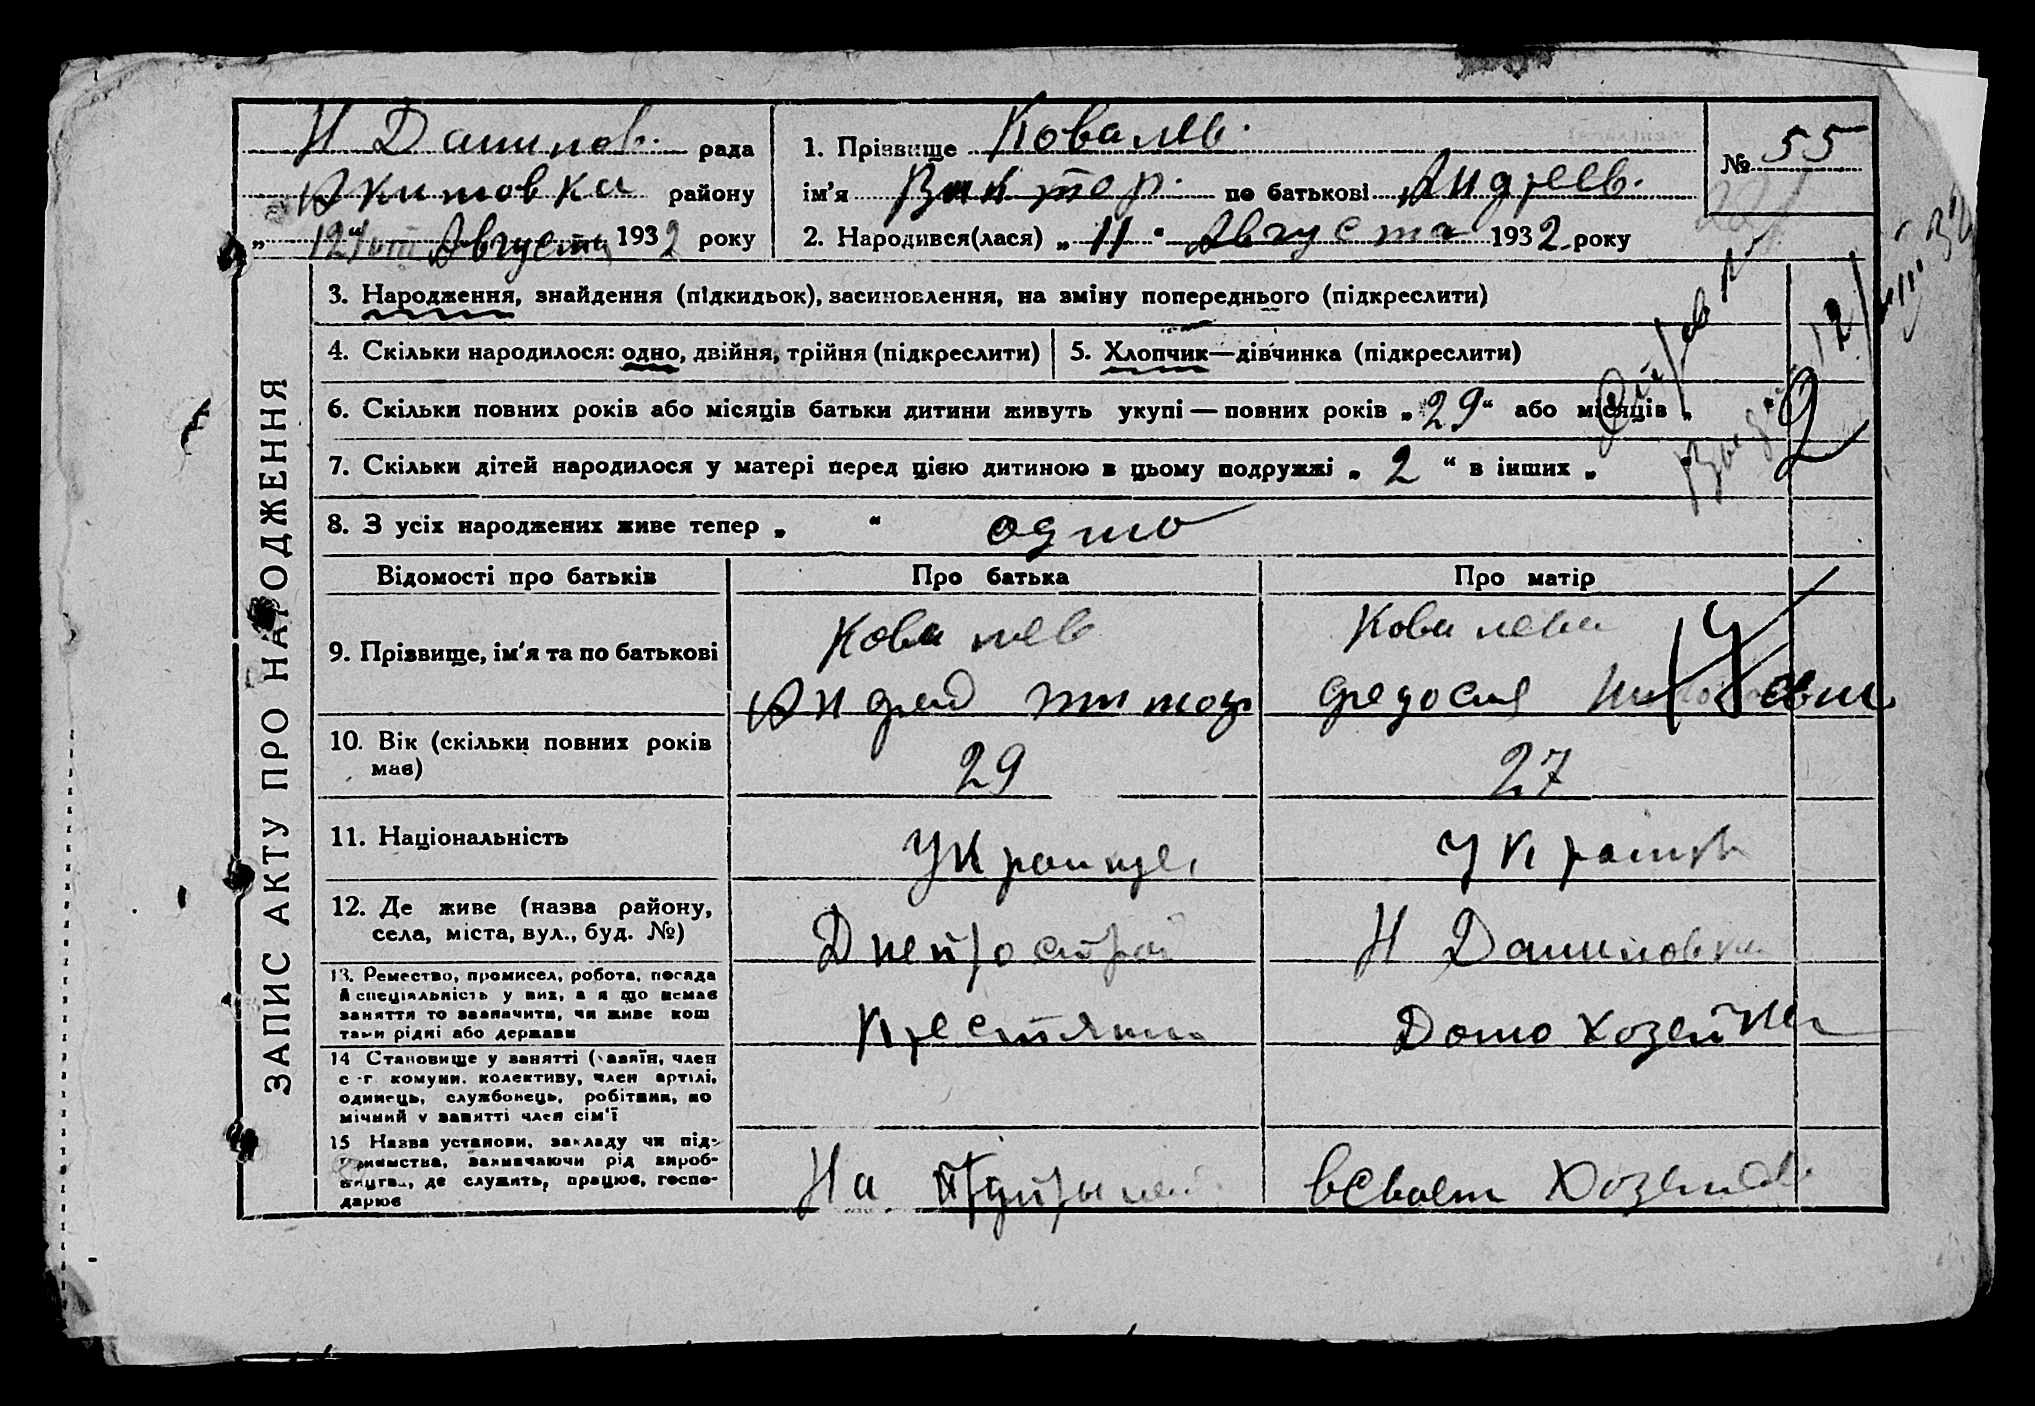 Н Данилов. рада
Акимовка району
„ 12 " Августа 1932 року
1. Прізвище Ковалев.
ім'я Виктор. по батькові Андреев.
2. Народився(лася) „ 11 " Августа 1932 року
№ 55
ЗАПИС АКТУ ПРО НАРОДЖЕННЯ
3. Народження, знайдення (підкидьок), засиновлення, на зміну попереднього (підкреслити)
4. Скільки народилося: одно, двійня, трійня (підкреслити)
5. Хлопчик—дівчинка (підкреслити)
6. Скільки повних років або місяців батьки дитини живуть укупі — повних років „ 29 " або місяців „
7. Скільки дітей народилося у матері перед цією дитиною в цьому подружжі „ 2 " в інших „
2
8. З усіх народжених живе тепер „ " одно
Відомості про батьків Про батька Про матір
9. Прізвище, ім'я та по батькові
Ковалев
Андрей Тимоф
Ковалева
Федосия
10. Вік (скільки повних років має)
29
27
11. Національність
Украинец
Украинк
12. Де живе (назва району, села, міста, вул., буд. №)
Днепрострой
Н Даниловка
13. Ремество, промисел, робота, посада
й спеціяльність у них, а я що немає
заняття то зазначити, чи живе кош
тами рідні або держави
Крестянин
Домохозейка
14 Становище у занятті (хазяїн, член
с-г комуни. колективу, член артілі,
одинець, службовець, робітник, по
мічний у занятті член сім'ї
15 Назва установи, закладу чи під-
приємства, зазначаючи рід вироб-
ництва, де служить, працює, госпо-
дарює
На
всвоем Хозяйстве